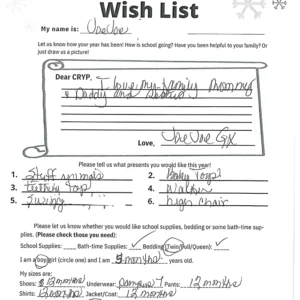 Wish List
My name is: JoeJoe
Let us know how your year has been! How is school going? Have you been helpful to your family? Or
just draw a picture!
Dear CRYP, I love my family mommy
& Daddy and
Love,
JoeJoe
Please tell us what presents you would like this year!
1. Stuff animals 2. Baby toys
3. teething toys 4. Walker
5. Swing 6. high chair
Please let us know whether you would like school supplies, bedding or some bath-time sup-
plies. (Please check those you need):
School Supplies: Bath-time Supplies: ✓ Bedding (Twin/Full/Queen): ✓
I am a boy/girl (circle one) and I am months years old.
My sizes are:
Shoes: 12 months Underwear: Pampers 7 Pants: 12 months
Shirts: 12 months Jacket/Coat: 12 months